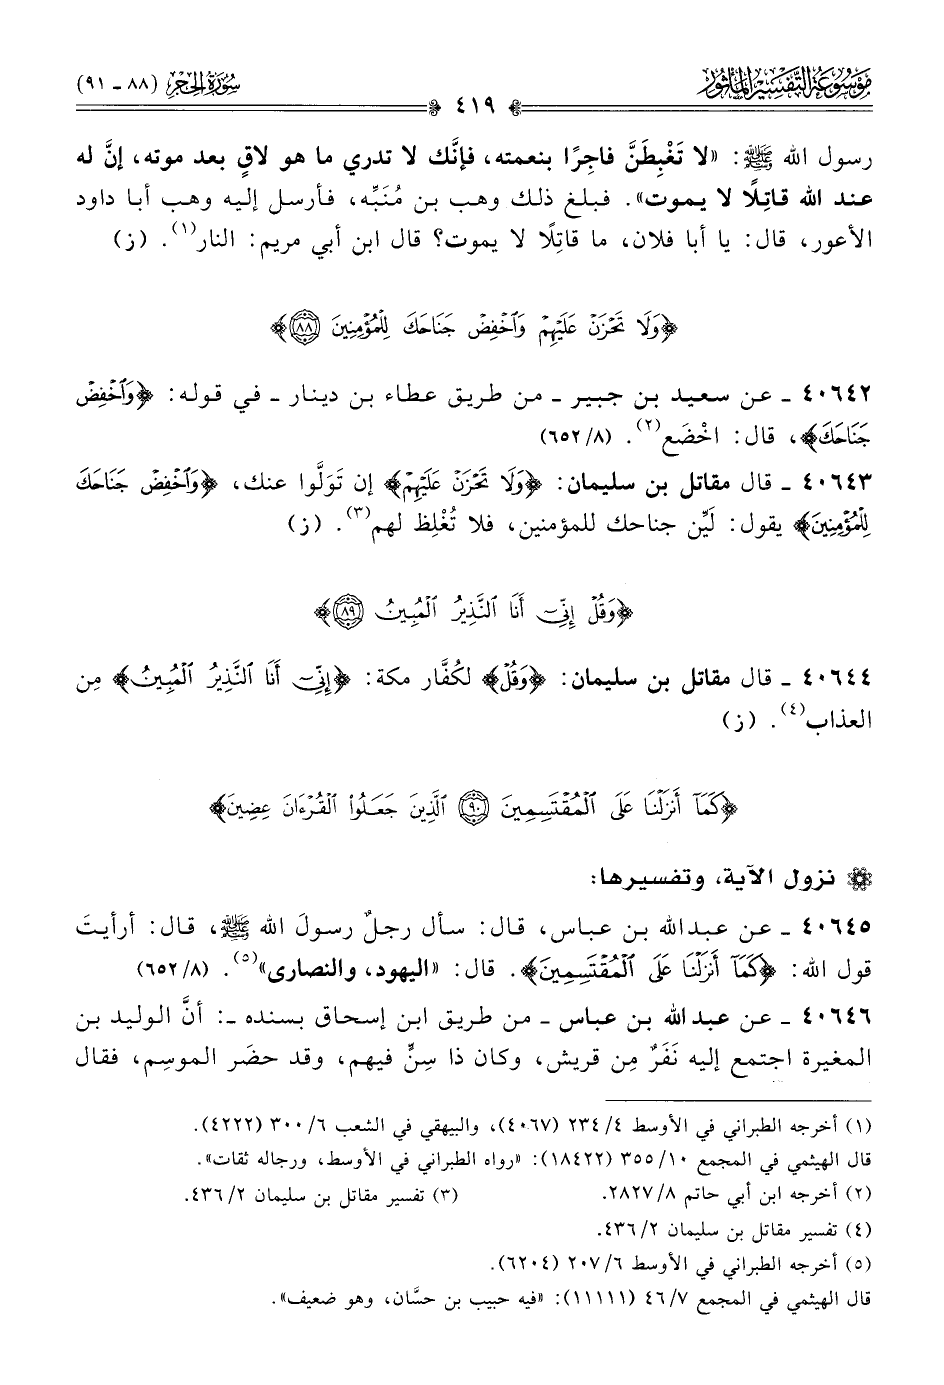 موسوعة التفسير المأثور
سورة الحجر (٨٨ - ٩١)
٤١٩
رسول الله ﷺ: «لا تَغْبِطَنَّ فاجِرًا بنعمته، فإنَّك لا تدري ما هو لاقٍ بعد موته، إنَّ له
عند الله قاتِلًا لا يموت». فبلغ ذلك وهب بن مُنَبِّه، فأرسل إليه وهب أبا داود
الأعور، قال: يا أبا فلان، ما قاتِلًا لا يموت؟ قال ابن أبي مريم: النار(١). (ز)
﴿وَلَا تَحْزَنْ عَلَيْهِمْ وَٱخْفِضْ جَنَاحَكَ لِلْمُؤْمِنِينَ ٨٨﴾
٤٠٦٤٢ ـ عن سعيد بن جبير ـ من طريق عطاء بن دينار ـ في قوله: ﴿وَٱخْفِضْ
جَنَاحَكَ﴾، قال: اخْضَع(٢). (٦٥٢/٨)
٤٠٦٤٣ ـ قال مقاتل بن سليمان: ﴿وَلَا تَحْزَنْ عَلَيْهِمْ﴾ إن تَوَلَّوا عنك، ﴿وَٱخْفِضْ جَنَاحَكَ
لِلْمُؤْمِنِينَ﴾ يقول: لَيِّن جناحك للمؤمنين، فلا تُغْلِظ لهم(٣). (ز)
﴿وَقُلْ إِنِّىٓ أَنَا ٱلنَّذِيرُ ٱلْمُبِينُ ٨٩﴾
٤٠٦٤٤ ـ قال مقاتل بن سليمان: ﴿وَقُلْ﴾ لكُفَّار مكة: ﴿إِنِّىٓ أَنَا ٱلنَّذِيرُ ٱلْمُبِينُ﴾ مِن
العذاب(٤). (ز)
﴿كَمَآ أَنزَلْنَا عَلَى ٱلْمُقْتَسِمِينَ ٩٠ ٱلَّذِينَ جَعَلُوا۟ ٱلْقُرْءَانَ عِضِينَ﴾
نزول الآية، وتفسيرها:
٤٠٦٤٥ ـ عن عبدالله بن عباس، قال: سأل رجلٌ رسولَ الله ﷺ، قال: أرأيتَ
قول الله: ﴿كَمَآ أَنزَلْنَا عَلَى ٱلْمُقْتَسِمِينَ﴾. قال: «اليهود، والنصارى»(٥). (٦٥٢/٨)
٤٠٦٤٦ ـ عن عبدالله بن عباس ـ من طريق ابن إسحاق بسنده ـ: أنَّ الوليد بن
المغيرة اجتمع إليه نَفَرٌ مِن قريش، وكان ذا سِنٍّ فيهم، وقد حضَر الموسِم، فقال
(١) أخرجه الطبراني في الأوسط ٢٣٤/٤ (٤٠٦٧)، والبيهقي في الشعب ٣٠٠/٦ (٤٢٢٢).
قال الهيثمي في المجمع ٣٥٥/١٠ (١٨٤٢٢): «رواه الطبراني في الأوسط، ورجاله ثقات».
(٢) أخرجه ابن أبي حاتم ٢٨٢٧/٨. (٣) تفسير مقاتل بن سليمان ٤٣٦/٢.
(٤) تفسير مقاتل بن سليمان ٤٣٦/٢.
(٥) أخرجه الطبراني في الأوسط ٢٠٧/٦ (٦٢٠٤).
قال الهيثمي في المجمع ٤٦/٧ (١١١١١): «فيه حبيب بن حسَّان، وهو ضعيف».